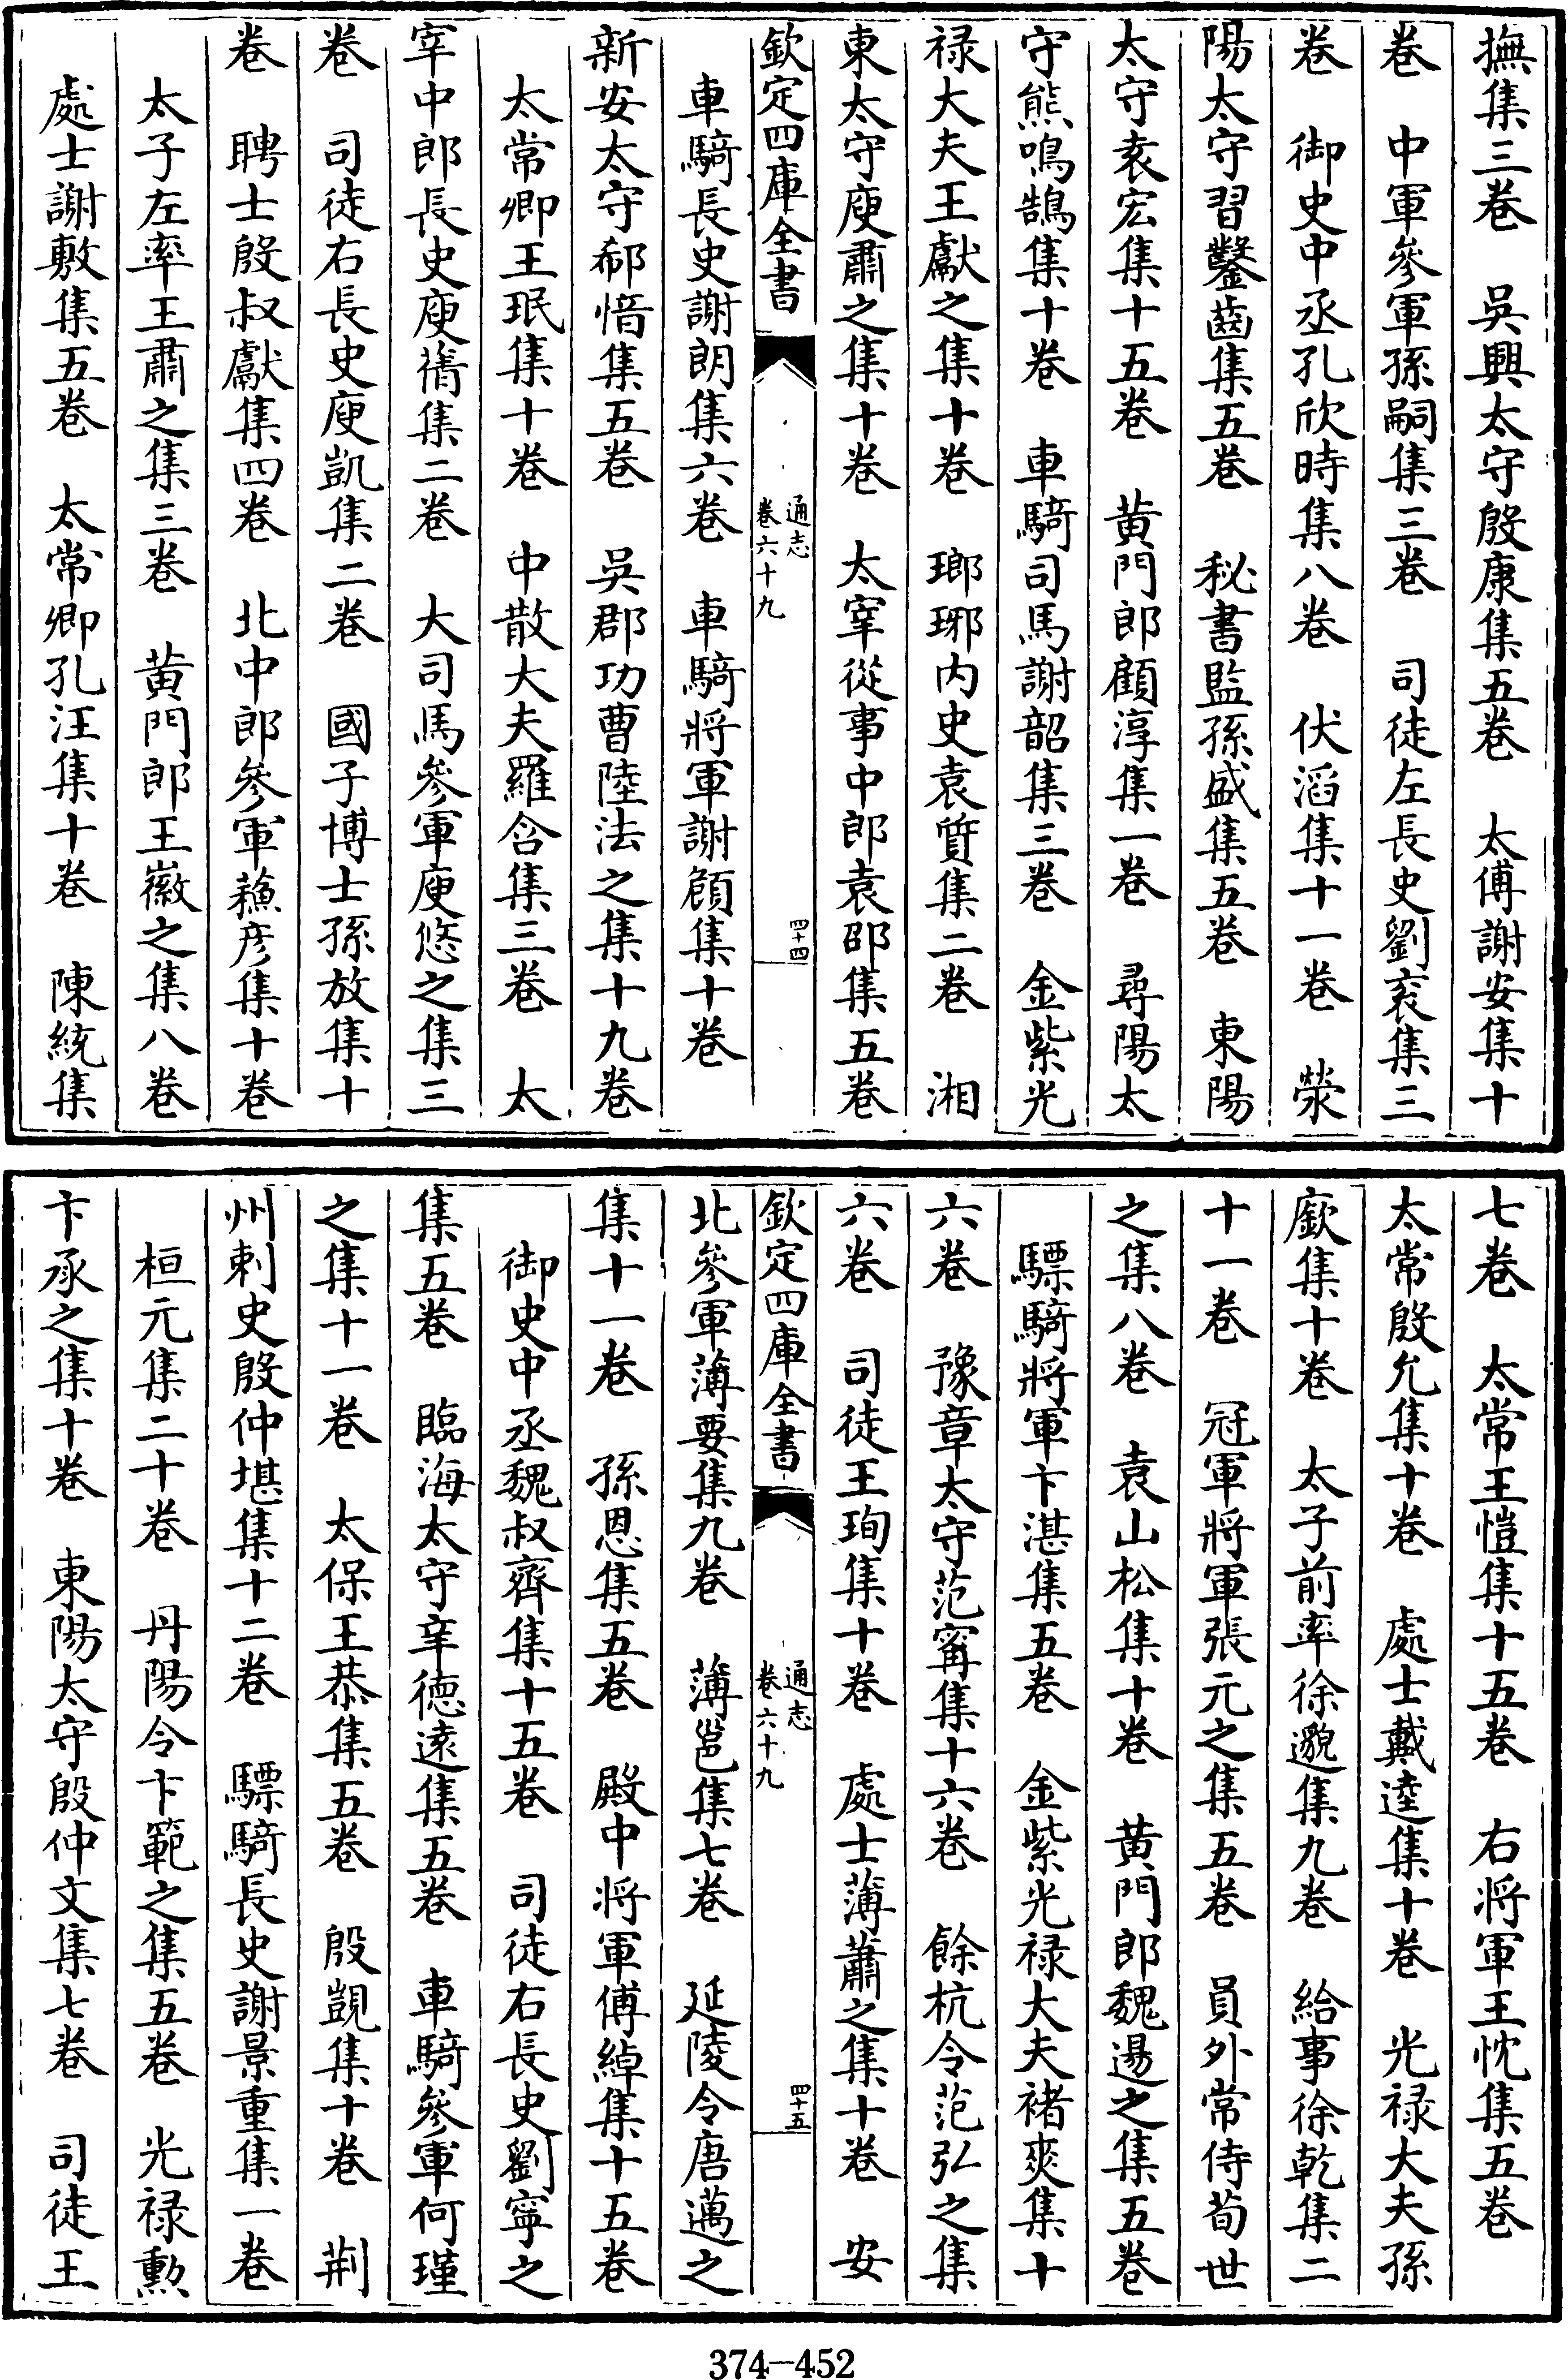 撫集三卷　吳興太守殷康集五卷　太傅謝安集十
卷　中軍參軍孫嗣集三卷　司徒左長史劉袞集三
卷　御史中丞孔欣時集八卷　伏滔集十一卷　滎
陽太守習鑿齒集五卷　秘書監孫盛集五卷　東陽
太守袁宏集十五卷　黄門郎顧淳集一卷　尋陽太
守熊鳴鵠集十卷　車騎司馬謝韶集三卷　金紫光
禄大夫王獻之集十卷　瑯琊内史袁質集二卷　湘
東太守庾肅之集十卷　太宰從事中郎袁邵集五卷
欽定四庫全書
通志
卷六十九
四十四
車騎長史謝朗集六卷　車騎將軍謝頠集十卷
新安太守郗愔集五卷　吳郡功曹陸法之集十九卷
太常卿王珉集十卷　中散大夫羅含集三卷　太
宰中郎長史庾蒨集二卷　大司馬參軍庾悠之集三
卷　司徒右長史庾凱集二卷　國子博士孫放集十
卷　聘士殷叔獻集四卷　北中郎參軍蘓彦集十卷
太子左率王肅之集三卷　黄門郎王徽之集八卷
處士謝敷集五卷　太常卿孔汪集十卷　陳統集
七卷　太常王愷集十五卷　右將軍王忱集五卷
太常殷允集十卷　處士戴逵集十卷　光禄大夫孫
廞集十卷　太子前率徐邈集九卷　給事徐乾集二
十一卷　冠軍將軍張元之集五卷　員外常侍荀世
之集八卷　袁山松集十卷　黄門郎魏逷之集五卷
驃騎將軍卞湛集五卷　金紫光禄大夫褚爽集十
六卷　豫章太守范甯集十六卷　餘杭令范弘之集
六卷　司徒王珣集十卷　處士薄蕭之集十卷　安
欽定四庫全書
通志
卷六十九
四十五
北參軍薄要集九卷　薄邕集七卷　延陵令唐邁之
集十一卷　孫恩集五卷　殿中將軍傅綽集十五卷
御史中丞魏叔齊集十五卷　司徒右長史劉寧之
集五卷　臨海太守辛德遠集五卷　車騎參軍何瑾
之集十一卷　太保王恭集五卷　殷覬集十卷　荆
州刺史殷仲堪集十二卷　驃騎長史謝景重集一卷
桓元集二十卷　丹陽令卞範之集五卷　光禄勲
卞承之集十卷　東陽太守殷仲文集七卷　司徒王
374-452